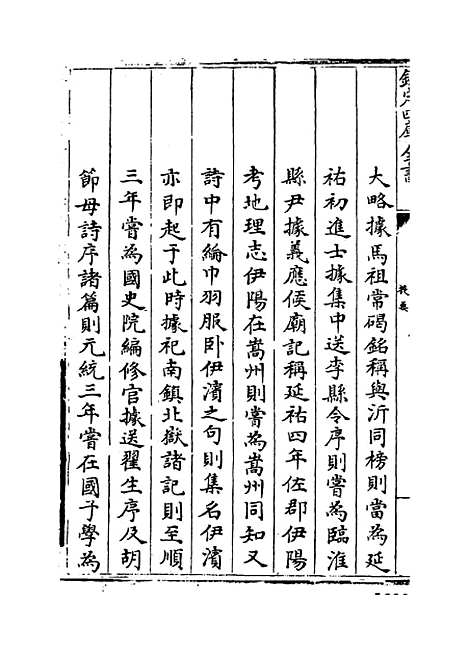 欽定四庫全書
提要
大略據馬祖常碣銘稱與沂同榜則當為延
祐初進士據集中送李縣令序則嘗為臨淮
縣尹據義應侯廟記稱延祐四年佐郡伊陽
考地理志伊陽在嵩州則嘗為嵩州同知又
詩中有綸巾羽服卧伊濱之句則集名伊濱
亦即起于此時據祀南鎮北嶽諸記則至順
三年嘗為國史院編修官據送翟生序及胡
節母詩序諸篇則元統三年嘗在國子學為